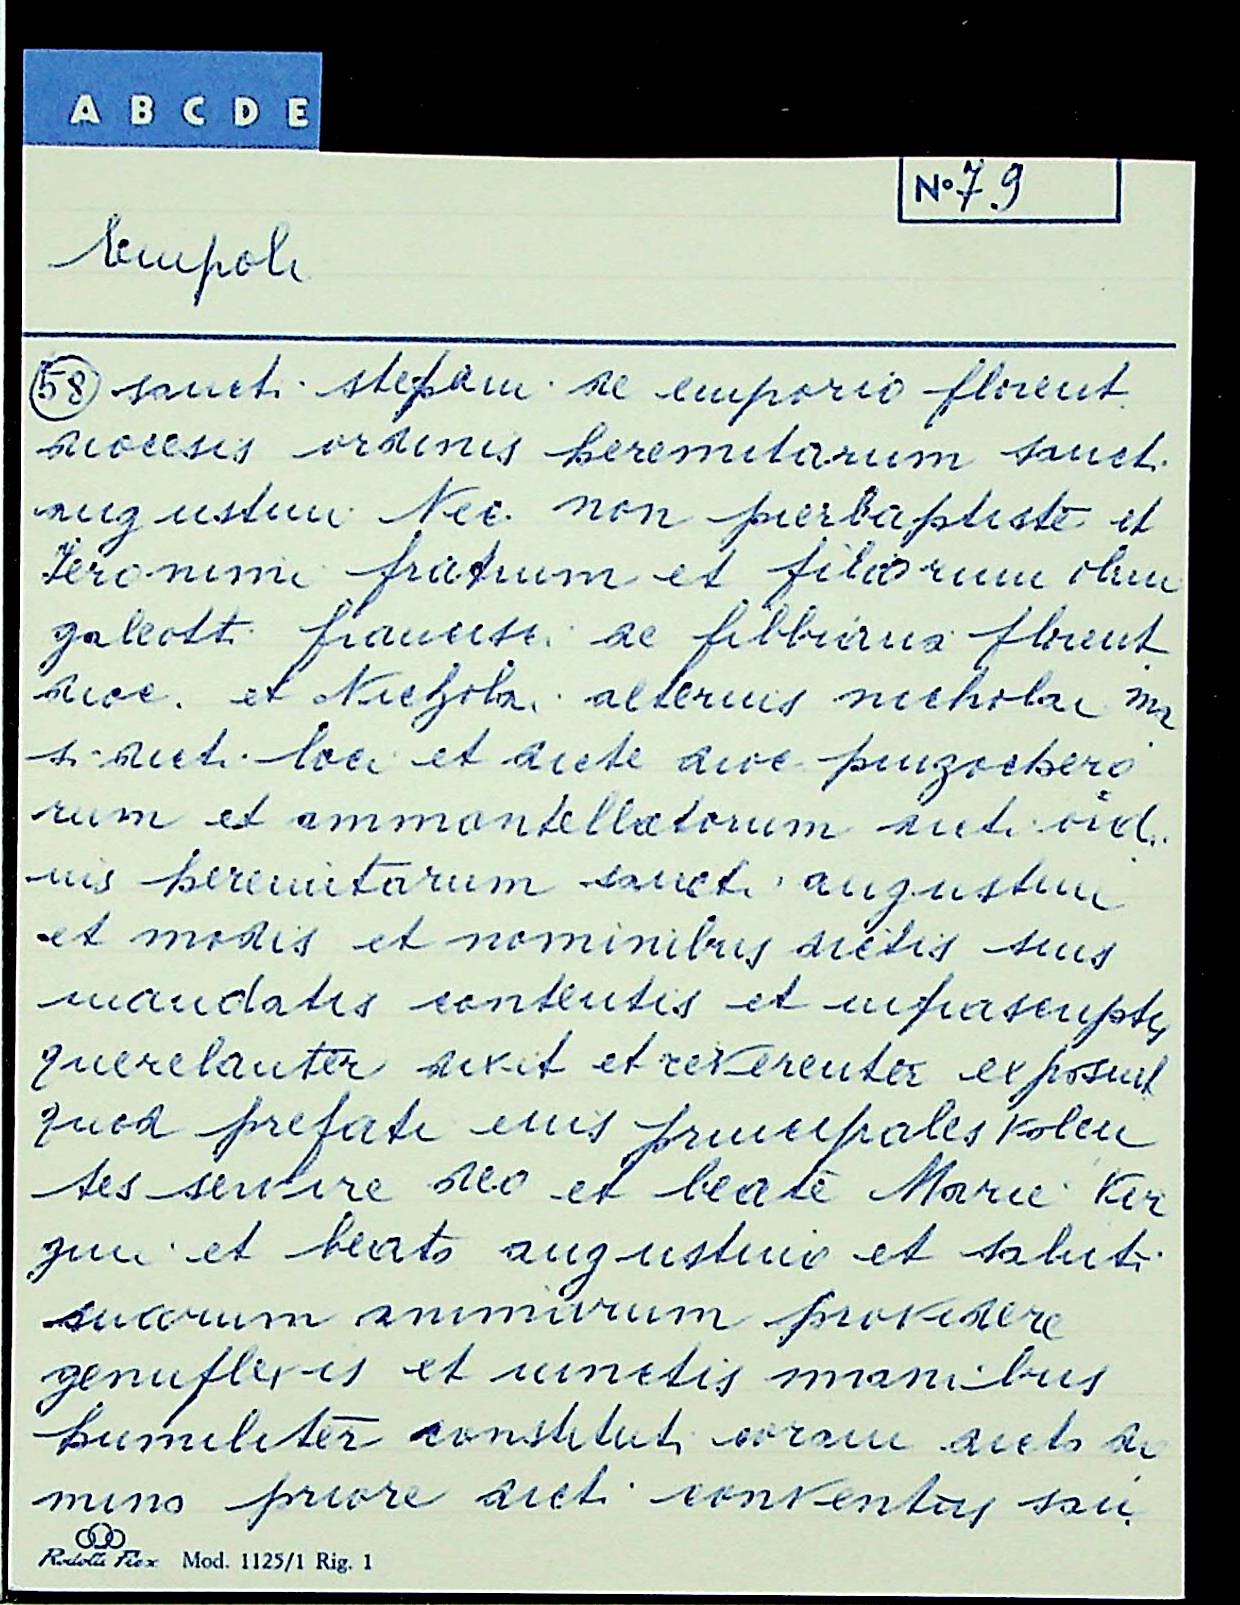 A B C D E
Nº 79
Empoli
58 sancti stefani de emporio florent.
diocesis ordinis heremitarum sancti
augustini Nec non pierbaptiste et
Ieronimi fratrum et filiorum olim
galeotti francisci de fibbiana florent
dioc. et Nicholai alterius nicholai
dicti loci et dicte dioc pinzochero
rum et ammantellatorum dicti ordi
nis heremitarum sancti augustini
et modis et nominibus dictis suis
mandatis contentis et infrascriptis
querelanter dixit et reverenter exposuit
quod prefati eius principales volen
tes servire deo et beate Marie Vir
gini et beato augustino et saluti
suarum animarum providere
genuflexis et iunctis manibus
humiliter constituti coram dicto do
mino priore dicti conventus san
Rodolfo Flex Mod. 1125/1 Rig. 1